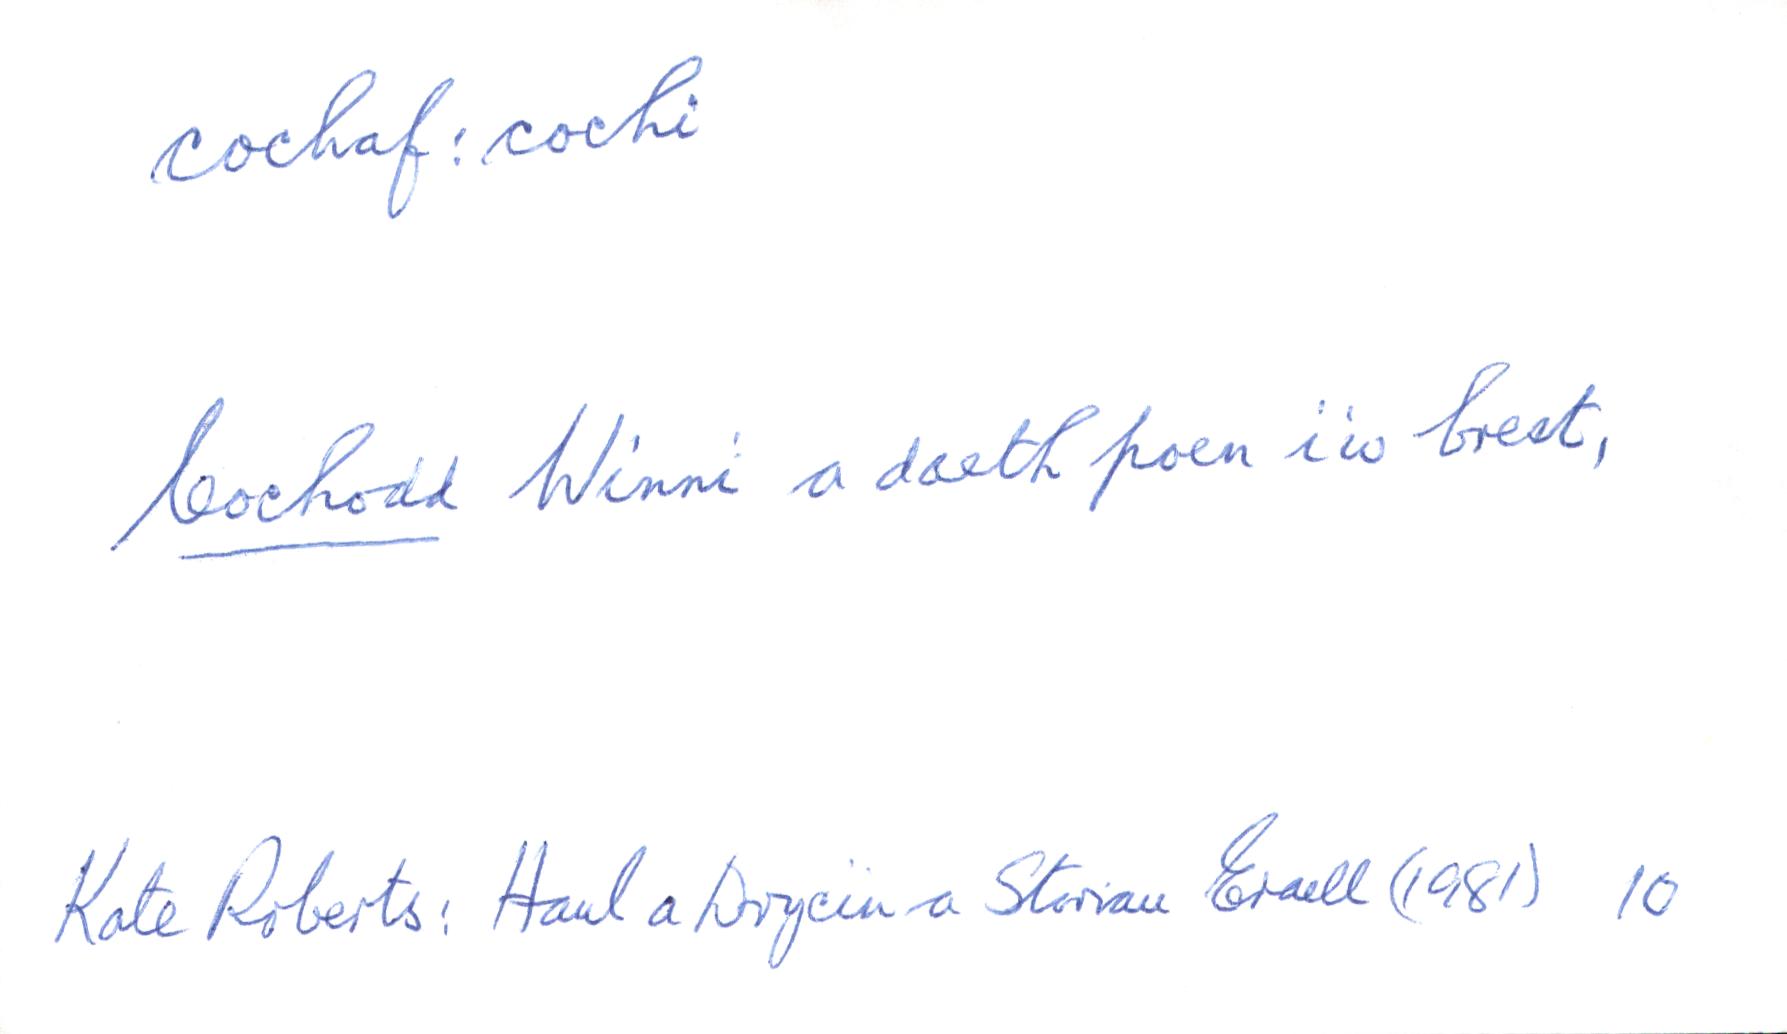 cochaf: cochi
Cochodd Winni a daeth poen i'w brest,
Kate Roberts: Haul a Drycin a Storïau Eraill (1981) 10